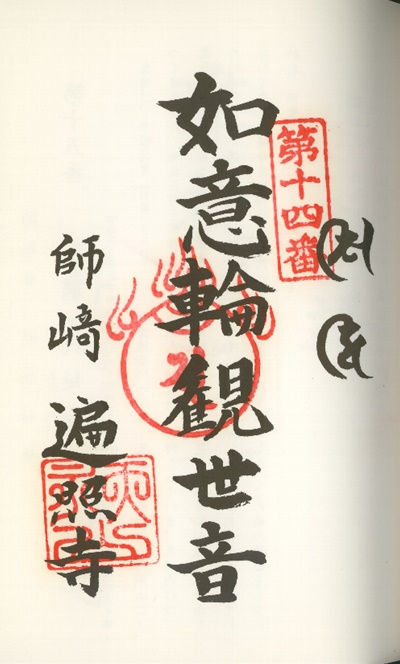 奉拝
第十四番
如意輪観世音
師崎
遍照寺